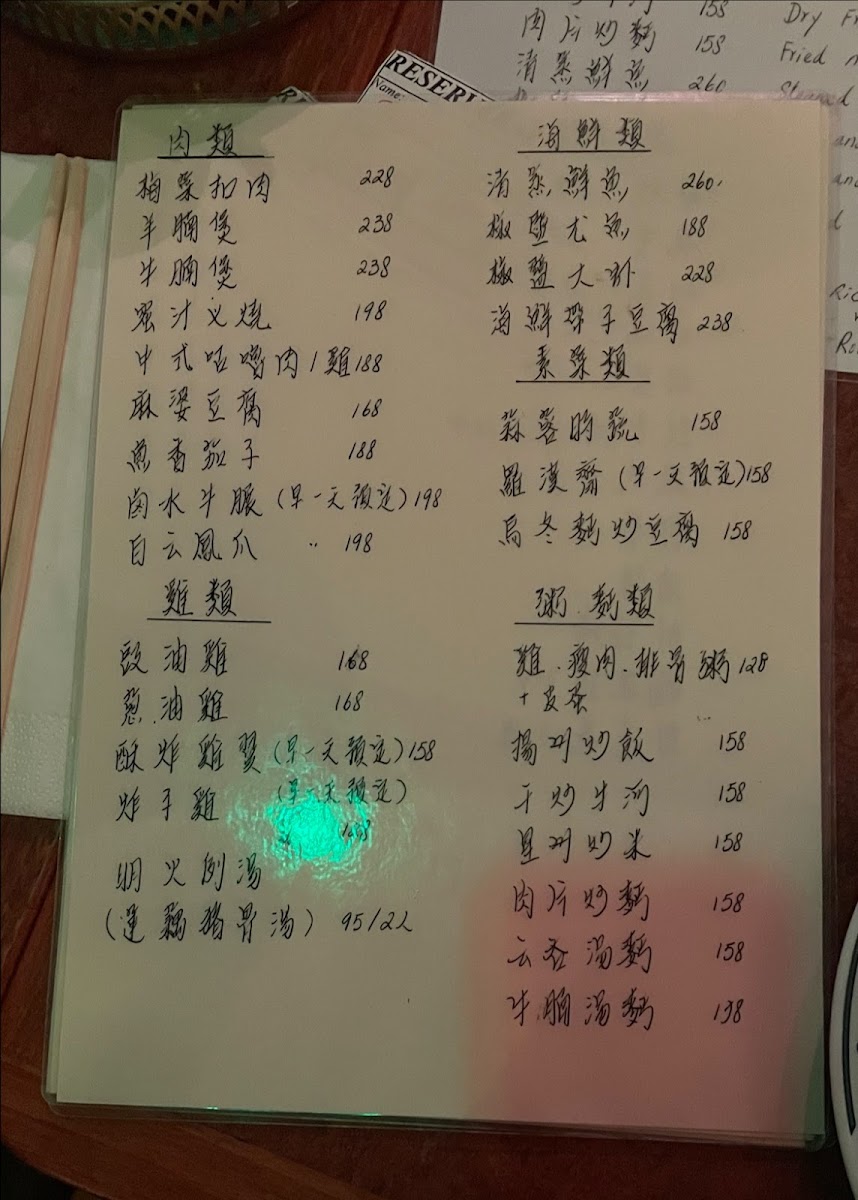 肉類
梅菜扣肉 228
羊腩煲 238
牛腩煲 238
蜜汁叉燒 198
中式咕嚕肉/雞 188
麻婆豆腐 168
魚香茄子 188
卤水牛腱 (早一天預定) 198
白云鳳爪 〃 198
雞類
豉油雞 168
葱油雞 168
酥炸雞翼 (早一天預定) 158
炸子雞 (早一天預定)
明火例湯
(蓮藕猪骨湯) 95/2人
海鮮類
清蒸鮮魚 260
椒盬尤魚 188
椒盬大虾 228
海鮮帶子豆腐 238
素菜類
蒜蓉時蔬 158
羅漢齋 (早一天預定) 158
烏冬麵炒豆腐 158
粥.麵類
雞.瘦肉.排骨粥 128
+皮蛋
揚州炒飯 158
干炒牛河 158
星州炒米 158
肉片炒麵 158
云吞湯麵 158
牛腩湯麵 138
RESERV
Name:
158 Dry Fr
肉片炒麵 158 Fried n
清蒸鮮魚 260 Steamed